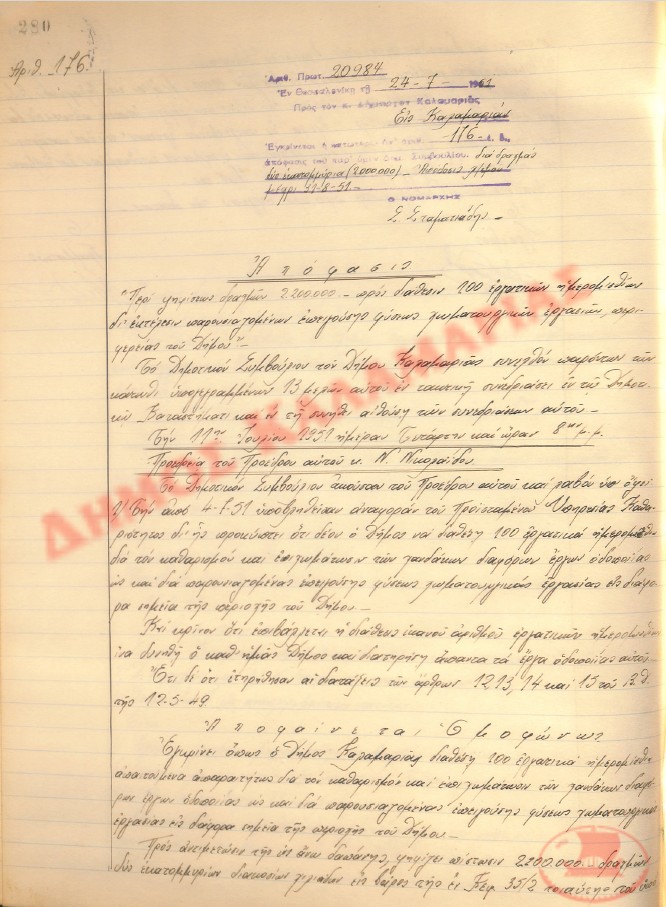 280
Αριθ. 176.
Αριθ. Πρωτ. 20984
Εν Θεσσαλονίκη τη 24-7-1951
Προς τον κ. Δήμαρχον Καλαμαριάς
Εις Καλαμαριάν
Εγκρίνεται η υπ' αριθ. 176 ε. ε.
απόφασις του Συμβουλίου. διά δραχμάς
δύο εκατομμύρια (2.000.000) Απόδοσις λ/σμού
μέχρι 31-8-51.
Ο ΝΟΜΑΡΧΗΣ
Σ. Σταματιάδης
Ἀπόφασις
"Περί ψηφίσεως δραχμών 2200.000.- προς διάθεσιν 100 εργατικών ημερομισθίων
δι' εκτέλεσιν παρουσιαζομένων επειγούσης φύσεως χωματουργικών εργασιών, περι-
φερείας του Δήμου"-
Τό Δημοτικόν Συμβούλιον του Δήμου Καλαμαριάς συνελθόν παρόντων των
κάτωθι υπογεγραμμένων 13 μελών αυτού εν τακτική συνεδριάσει εν τω Δημοτι-
κώ Καταστήματι και εν τη συνήθει αιθούση των συνεδριάσεων αυτού-
Την 11ην Ιουλίου 1951 ημέραν Τετάρτην και ώραν 8ην μ.μ.
Προεδρεία του Προέδρου αυτού κ. Ν. Νικολαΐδου.
Τό Δημοτικόν Συμβούλιον ακούσαν του Προέδρου αυτού και λαβόν υπ' όψει
1/ Την από 4-7-51 υποβληθείσαν αναφοράν του Προϊσταμένου Υπηρεσίας Καθα-
ριότητος δι' ής προκύπτει ότι δέον ο Δήμος να διαθέση 100 εργατικά ημερομίσθια
διά τον καθαρισμόν και επιχωμάτωσιν των χανδάκων διαφόρων έργων οδοποιίας
ως και διά παρουσιαζομένας επειγούσης φύσεως χωματουργικάς εργασίας εις διάφο-
ρα σημεία της περιοχής του Δήμου.-
Καί κρίνον ότι επιβάλλεται η διάθεσις ικανού αριθμού εργατικών ημερομισθίων
ίνα δυνηθή ο καθ' ημάς Δήμος και διατηρήση άπαντα τα έργα οδοποιίας αυτού.-
Ότι δε ότι ετηρήθησαν αι διατάξεις των άρθρων 12, 13, 14 και 15 του Β.Δ.
της 12-5-49
Ἀποφαίνεται Ὁμοφώνως
Εγκρίνει όπως ο Δήμος Καλαμαριάς διαθέση 100 εργατικά ημερομίσθια
απαιτούμενα απαραιτήτως διά τον καθαρισμόν και επιχωμάτωσιν των χανδάκων διαφό-
ρων έργων οδοποιίας ως και διά παρουσιαζομένας επειγούσης φύσεως χωματουργικάς
εργασίας εις διάφορα σημεία της περιοχής του Δήμου.-
Προς αντιμετώπισιν της ως άνω δαπάνης, ψηφίζει πίστωσιν 2200.000. δραχμών
δύο εκατομμυρίων διακοσίων χιλιάδων εις βάρος της εν Κεφ. 35/2 τοιαύτης του
ΔΗΜΟΣ ΚΑΛΑΜΑΡΙΑΣ